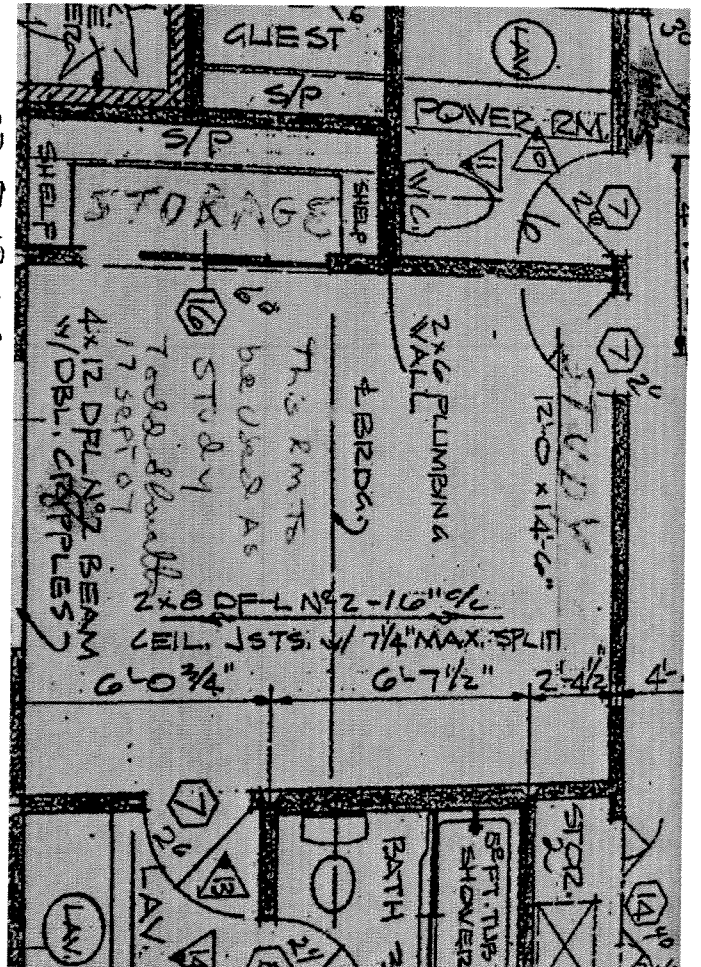 GUEST
S/P
S/P
SHELF
STORAGE
SHELF
LAV.
POWER RM.
11
10
W.C.
2⁶
7
3⁰
16
6⁰
7
STUDY
12'-0 x 14'-6"
2x6 PLUMBING
WALL
This RM TO
be used AS
STUDY
17 sept 07
4x12 DFL Nº2 BEAM
W/DBL. CRIPPLES
2x8 DF-L Nº2 - 16" o/c
CEIL. JSTS. W/ 7 1/4" MAX. SPLIT
6'-0 3/4"
6'-7 1/2"
2'-4 1/2"
4'-
7
2⁶
13
LAV.
LAV.
BATH
5 FT. TUB
SHOWER
STOR.
14
4⁰